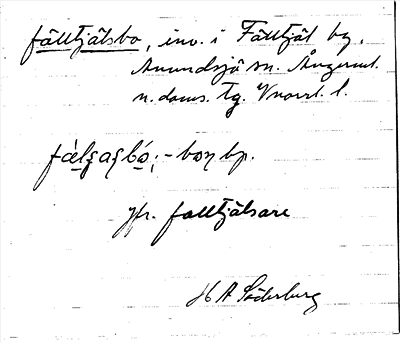 fälltjälsbo, inv. i Fälltjäl by,
Anundsjö sn. Ångerml.
n. doms. tg. Vnorrl. l.
-boɳ bp.
jfr. falltjälsare
H A Söderburg